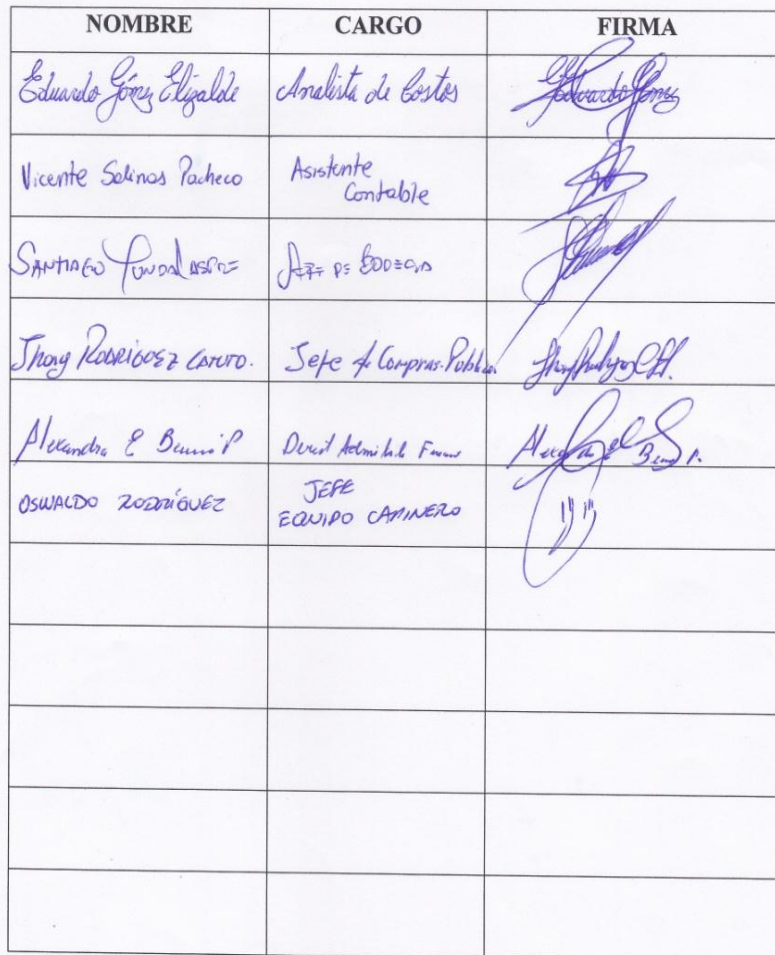 NOMBRE CARGO FIRMA
Eduardo Gómez Elizalde Analista de Costos Eduardo Gómez
Vicente Salinas Pacheco Asistente
Contable
SANTIAGO JEFE DE BODEGA
Jhony RODRÍGUEZ Jefe de Compras Publicas
Alexandra E P Alexandra
OSWALDO RODRÍGUEZ JEFE
EQUIPO CAMINERO